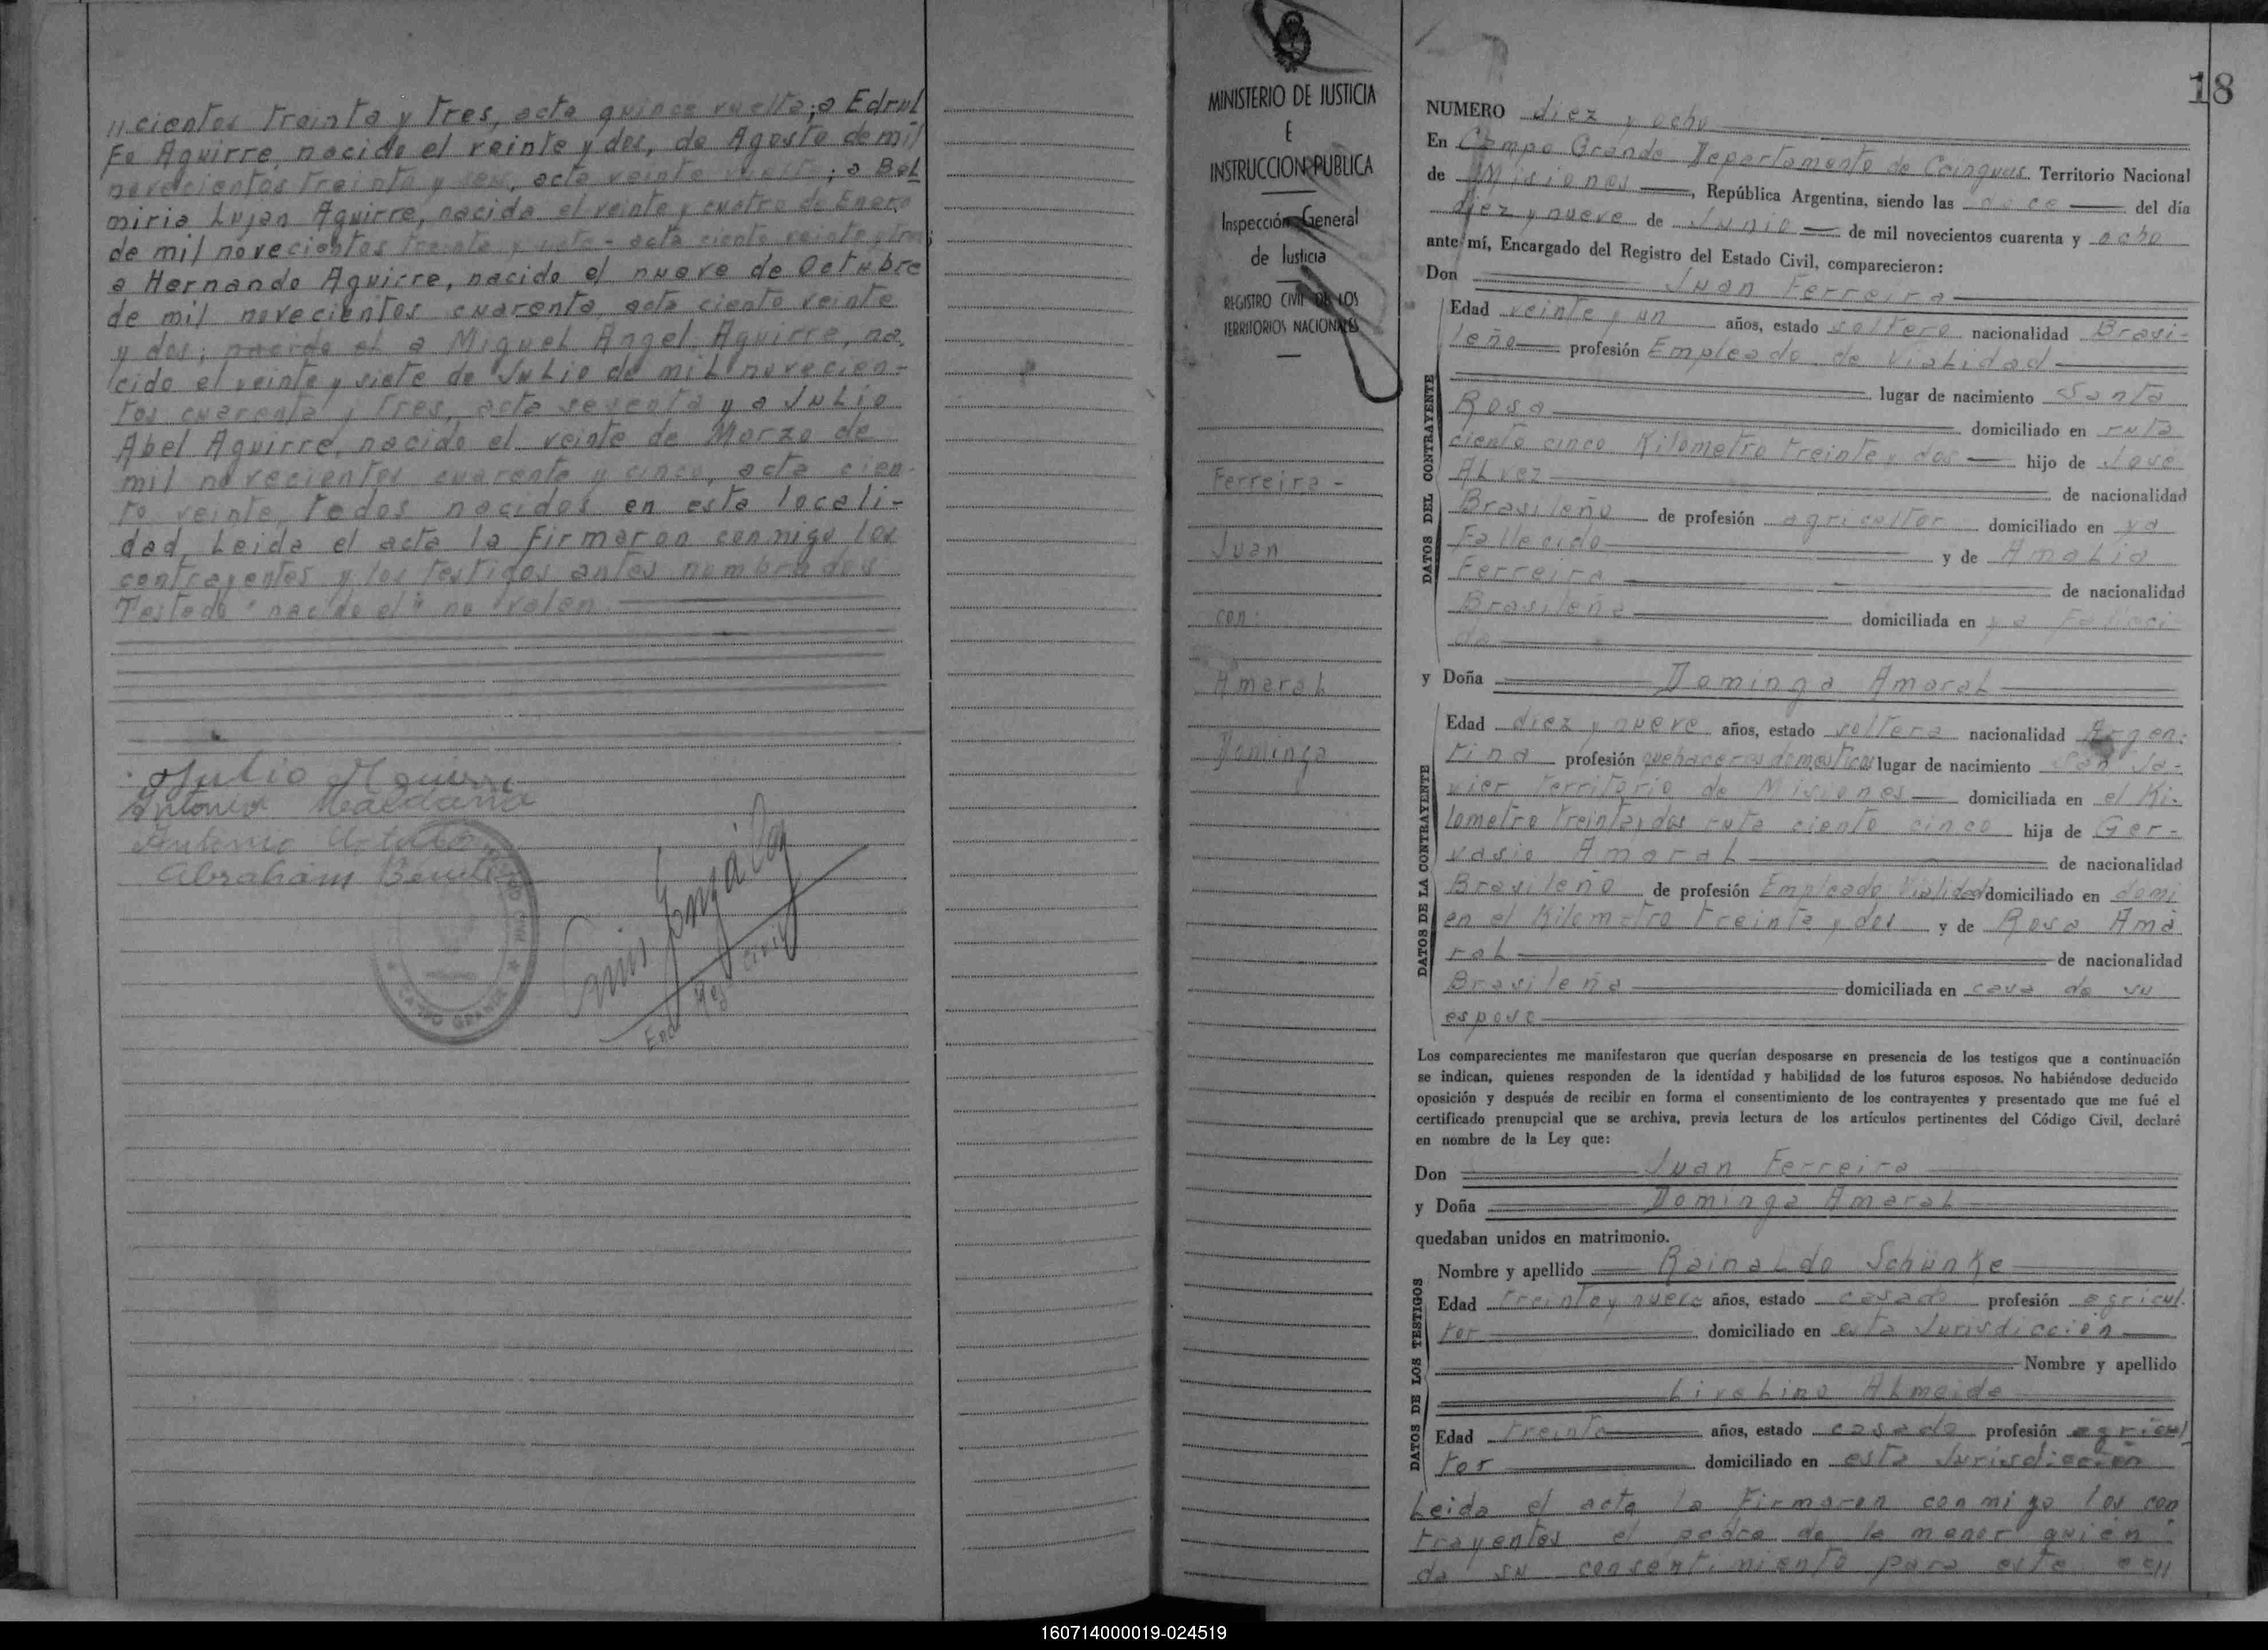 "cientos treinta y tres, acta quince vuelta; a Edrul
Fe Aguirre, nacido el veinte y dos, de Agosto de mil
novecientos treinta y seis, acta veinte vuelta; a Bel
miria Lujan Aguirre, nacida el veinte y cuatro de Enero
de mil novecientos treinta y - acta ciento veinte y tres;
a Hernando Aguirre, nacido el nueve de Octubre
de mil novecientos cuarenta, acta ciento veinte
y dos; nacido el a Miguel Angel Aguirre, na.
cido el veinte y siete de Julio de mil novecien-
tos cuarenta y tres, acta sesenta y a Julio
Abel Aguirre, nacido el veinte de Marzo de
mil novecientos cuarenta y cinco, acta cien-
to veinte, todos nacidos en esta locali-
dad, Leida el acta la firmaron conmigo los
contrayentes y los testigos antes nombrados
Testado "nacido el" no valen
Julio Aguirre
Antonio Maldana
Antonio
Abraham Benitez
CAMPO GRANDE
Luis González
Enc. Reg. Civil
MINISTERIO DE JUSTICIA
E
INSTRUCCION PUBLICA
Inspección General
de Justicia
REGISTRO CIVIL DE LOS
TERRITORIOS NACIONALES
Ferreira -
Juan
con
Amaral
Dominga
18
NUMERO diez y ocho
En Campo Grande Departamento de Cainguas Territorio Nacional
de Misiones, República Argentina, siendo las doce del día
diez y nueve de Junio de mil novecientos cuarenta y ocho
ante mí, Encargado del Registro del Estado Civil, comparecieron:
Don Juan Ferreira
DATOS DEL CONTRAYENTE
Edad veinte y un años, estado soltero nacionalidad Brasi-
leño profesión Empleado de Vialidad
lugar de nacimiento Santa
Rosa domiciliado en ruta
ciento cinco Kilometro treinta y dos hijo de José
Alvez de nacionalidad
Brasileño de profesión agricultor domiciliado en ya
Fallecido y de Amalia
Ferreira de nacionalidad
Brasileña domiciliada en ya Falleci
da
y Doña Dominga Amaral
DATOS DE LA CONTRAYENTE
Edad diez y nueve años, estado soltera nacionalidad Argen-
tina profesión quehaceres domesticos lugar de nacimiento San Ja-
vier Territorio de Misiones domiciliada en el Ki-
lometro treinta y dos ruta ciento cinco hija de Ger-
vasio Amaral de nacionalidad
Brasileño de profesión Empleado Vialidad domiciliado en domi
en el Kilometro treinta y dos y de Rosa Ama
ral de nacionalidad
Brasileña domiciliada en casa de su
esposo
Los comparecientes me manifestaron que querían desposarse en presencia de los testigos que a continuación
se indican, quienes responden de la identidad y habilidad de los futuros esposos. No habiéndose deducido
oposición y después de recibir en forma el consentimiento de los contrayentes y presentado que me fué el
certificado prenupcial que se archiva, previa lectura de los artículos pertinentes del Código Civil, declaré
en nombre de la Ley que:
Don Juan Ferreira
y Doña Dominga Amaral
quedaban unidos en matrimonio.
DATOS DE LOS TESTIGOS
Nombre y apellido Rainaldo Schünke
Edad treinta y nueve años, estado casado profesión agricul.
tor domiciliado en esta Jurisdicción
Nombre y apellido
Livolino Almeida
Edad treinta años, estado casado profesión agricul
tor domiciliado en esta Jurisdicción
Leida el acta la firmaron conmigo los con
trayentes el padre de la menor quién
da su consentimiento para este ac//
160714000019-024519